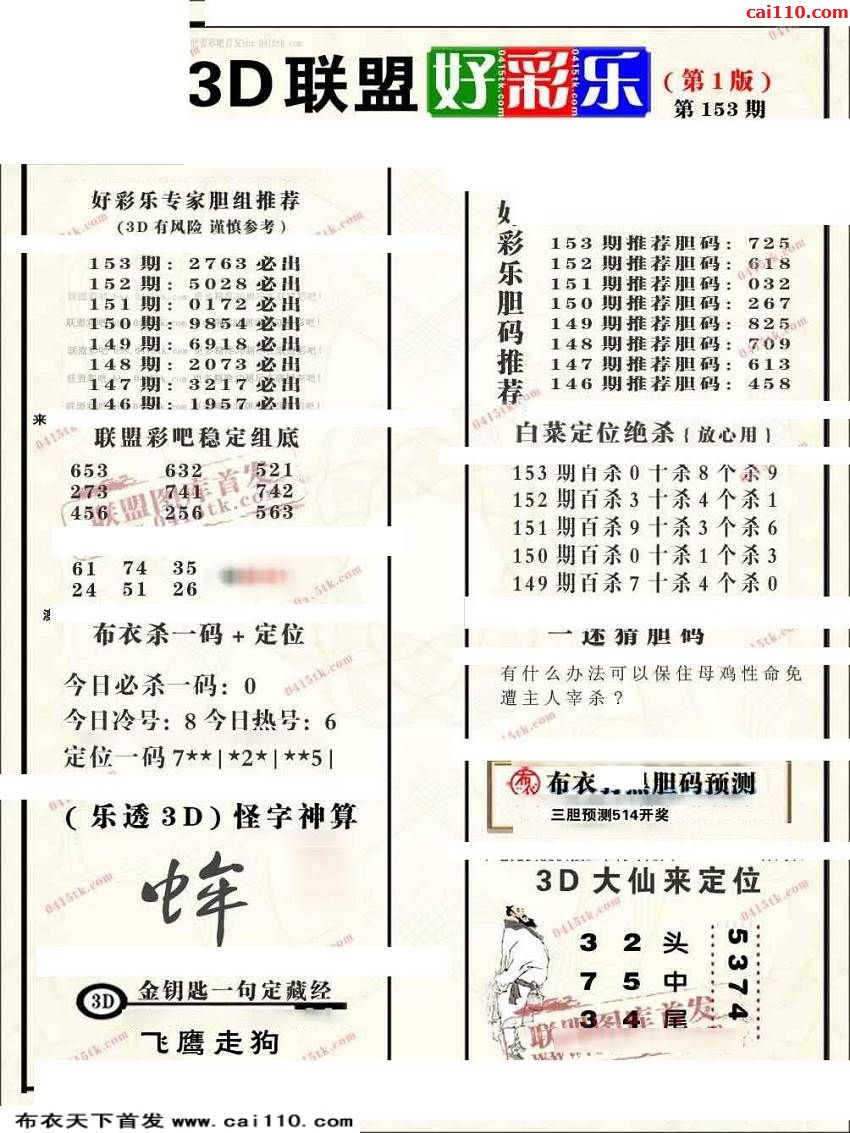 cai110.com
3D联盟好彩乐
(第1版)
第153期
好彩乐专家胆组推荐
(3D有风险 谨慎参考)
153期: 2763必出
152期: 5028必出
151期: 0172必出
150期: 9854必出
149期: 6918必出
148期: 2073必出
147期: 3217必出
146期: 1957必出
来
联盟彩吧稳定组底
653 632 521
273 741 742
456 256 563
61 74 35
24 51 26
布衣杀一码+定位
今日必杀一码: 0
今日冷号: 8 今日热号: 6
定位一码 7**|*2*|**5|
(乐透3D)怪字神算
3D 金钥匙一句定藏经
飞鹰走狗
好彩乐胆码推荐
153期推荐胆码: 725
152期推荐胆码: 618
151期推荐胆码: 032
150期推荐胆码: 267
149期推荐胆码: 825
148期推荐胆码: 709
147期推荐胆码: 613
146期推荐胆码: 458
白菜定位绝杀{放心用}
153期百杀0十杀8个杀9
152期百杀3十杀4个杀1
151期百杀9十杀3个杀6
150期百杀0十杀1个杀3
149期百杀7十杀4个杀0
一迷猜胆码
有什么办法可以保住母鸡性命免
遭主人宰杀?
布衣 胆码预测
三胆预测514开奖
3D大仙来定位
3 2 头
7 5 中
3 4 尾
5374
联盟图库首发
0415tk.com
布衣天下首发 www.cai110.com